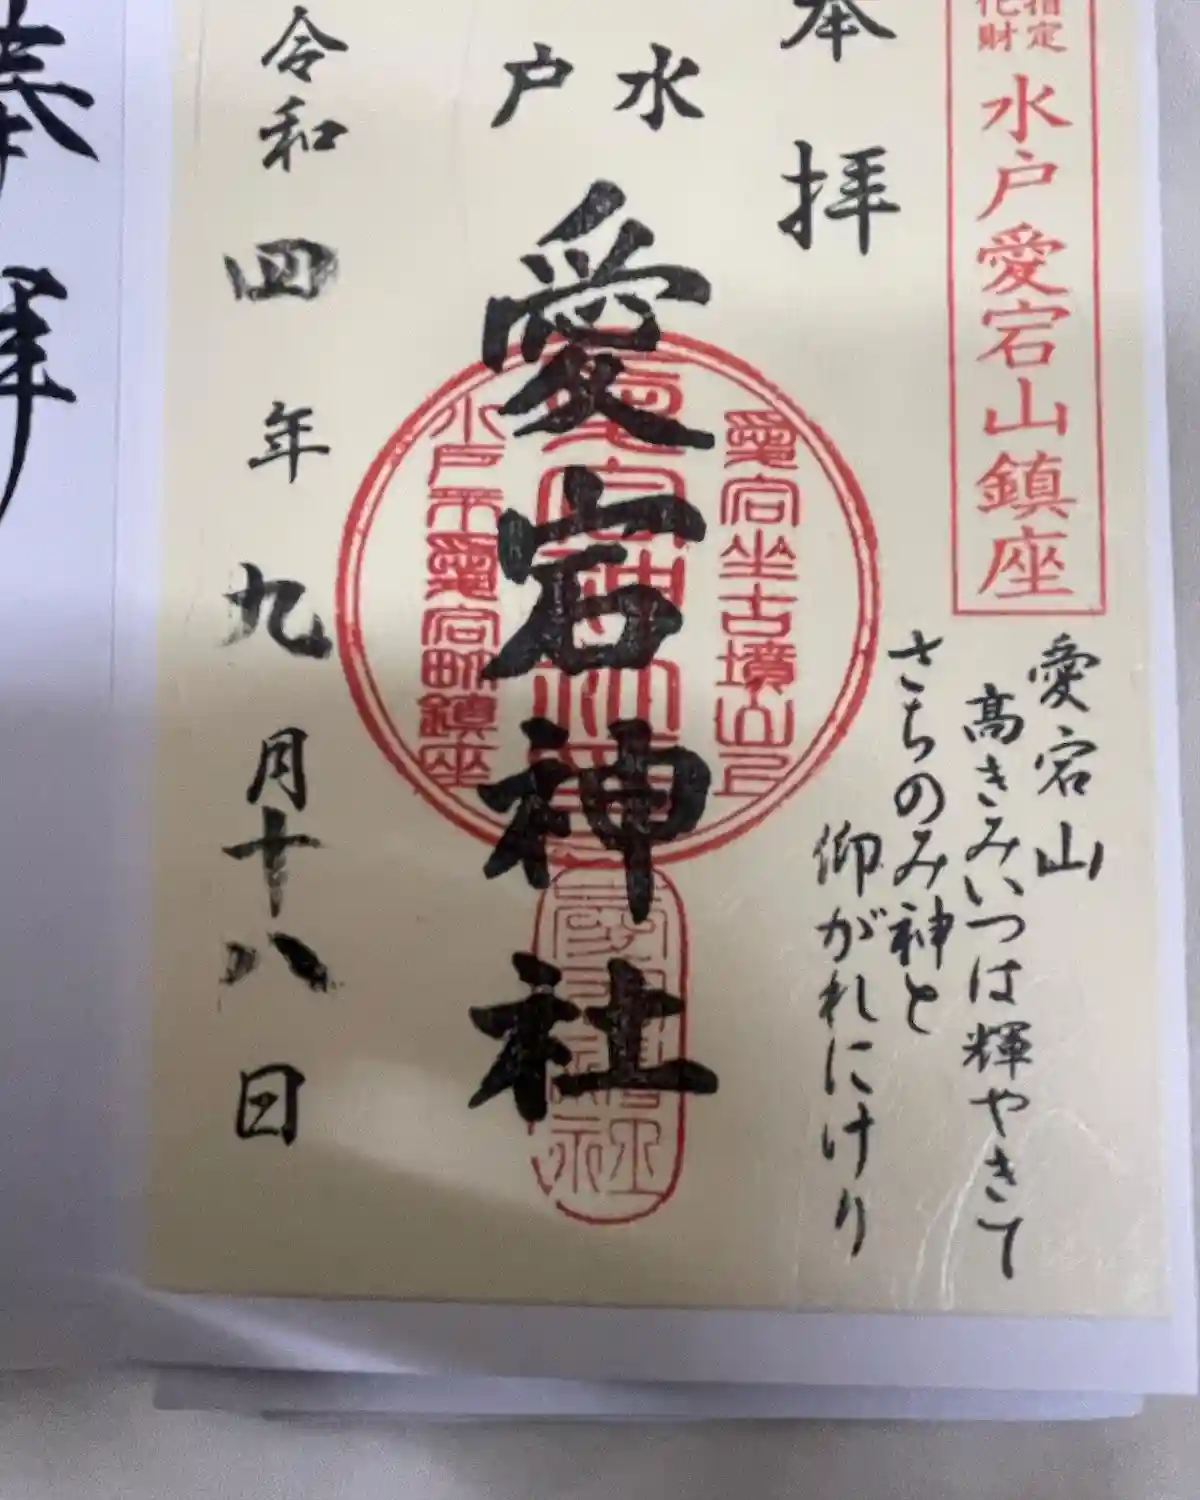 指定
化財
水戸愛宕山鎮座
奉拝
水戸
愛宕神社
愛宕山
高きみいつは輝やきて
さちのみ神と
仰がれにけり
愛宕坐古墳山上
愛宕神社
水戸市愛宕町鎮座
令和四年九月十八日
奉拝